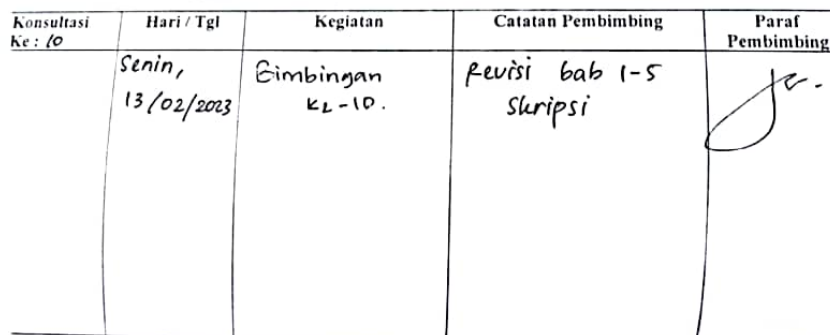 Konsultasi Ke : 10
Hari / Tgl
Kegiatan
Catatan Pembimbing
Paraf Pembimbing
Senin,
13/02/2023
Bimbingan
Ke-10.
Revisi bab 1-5
Skripsi